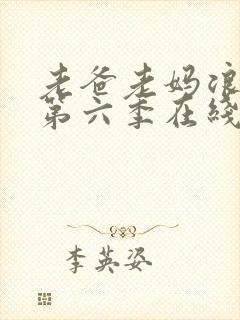 老爸老妈浪
第六季在线
李英姿